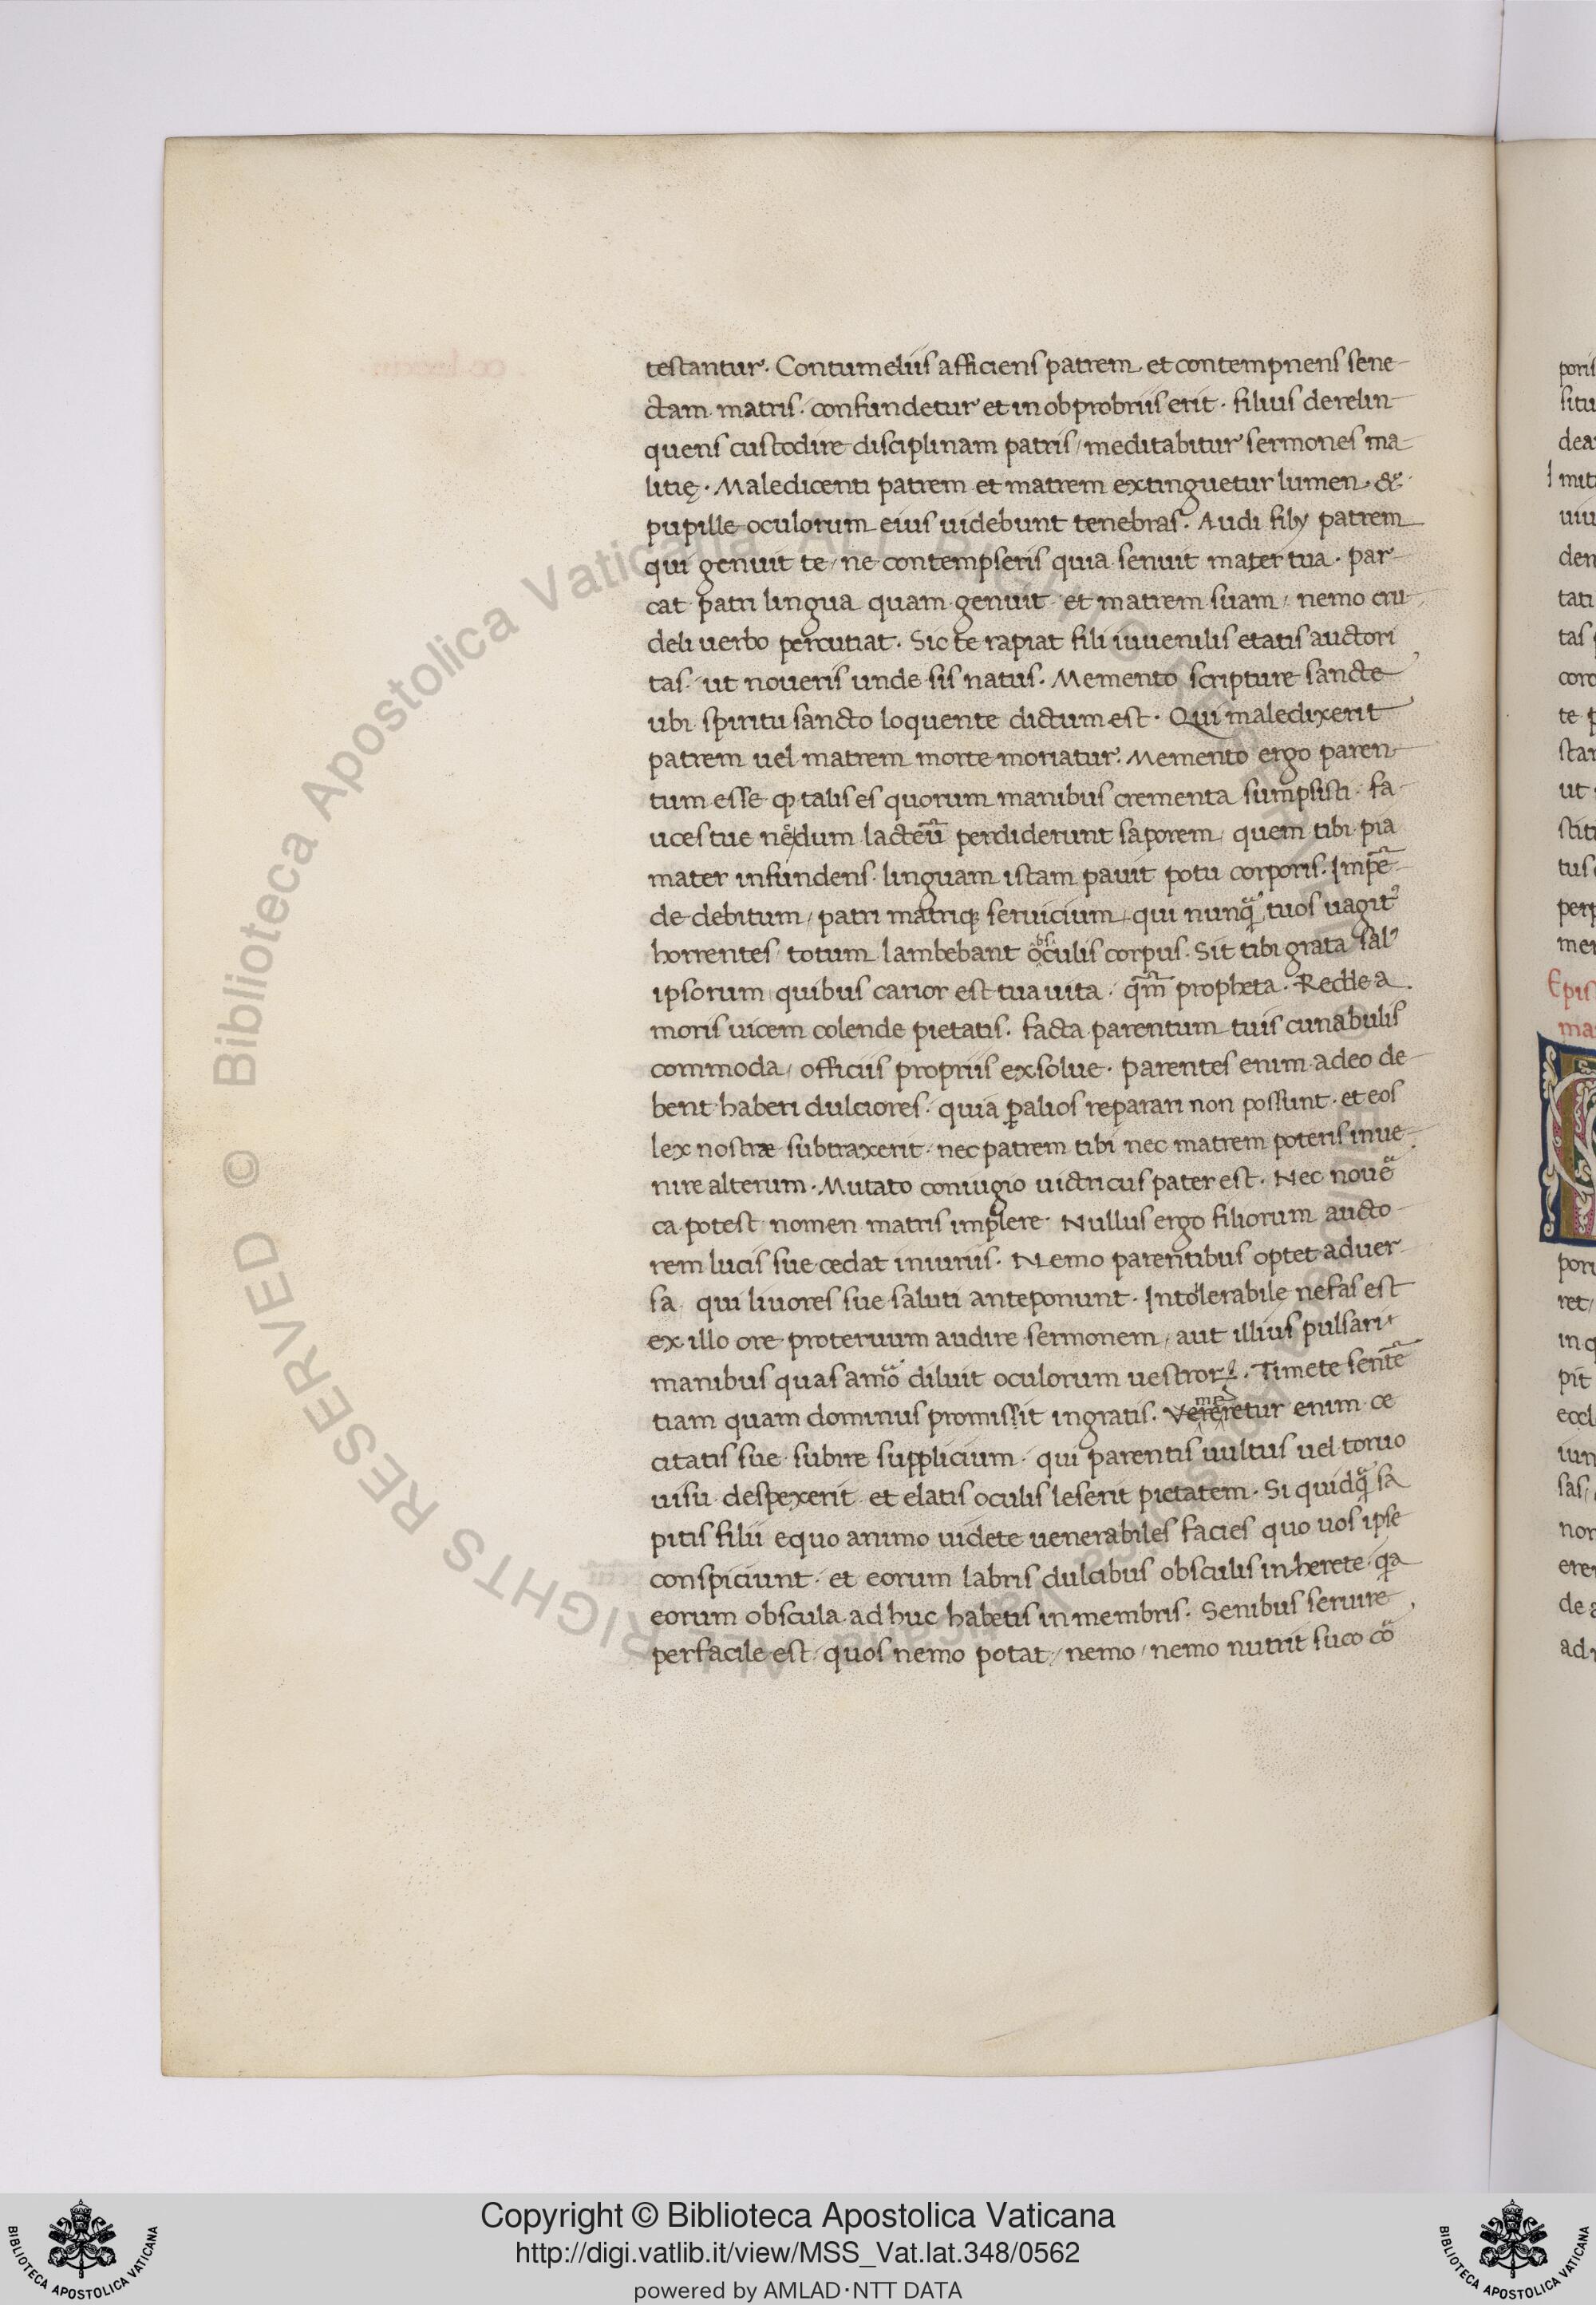 testantur. Contumeliis afficiens patrem et contempnens sene-
ctam matris. confundetur et in obprobriis erit. filius derelin-
quens custodire disciplinam patris / meditabitur sermones ma-
litię. Maledicenti patrem et matrem extinguetur lumen. &
pupille oculorum eius uidebunt tenebras. Audi fily patrem
qui genuit te / ne contempseris quia senuit mater tua. par-
cat patri lingua quam genuit et matrem suam / nemo cru-
deli uerbo percutiat. Sic te rapiat fili iuuenilis etatis auctori
tas. ut noueris unde sis natus. Memento scripture sancte
ubi spiritu sancto loquente dictum est. Qui maledixerit
patrem uel matrem morte moriatur. Memento ergo paren-
tum esse ꝙ talis es quorum manibus crementa sumpsisti. fa-
uces tue nēdum lacteū perdiderunt saporem, quem tibi pia
mater infundens. linguam istam pauit potu corporis. Impē-
de debitum / patri matriq; seruicium, qui nunq̄ tuos uagit⁹
horrentes totum lambebant obsculis corpus. Sit tibi grata sal⁹
ipsorum quibus carior est tua uita. qm̄ propheta. Redde a
moris uicem colende pietatis. facta parentum tuis cunabulis
commoda / officiis propriis exsolue. Parentes enim adeo de-
bent haberi dulciores. quia ꝑ alios reparari non possunt. et eos
lex nostræ subtraxerit. nec patrem tibi nec matrem poteris inue-
nire alterum. Mutato coniugio uictricus pater est. Nec nouē
ca potest nomen matris implere. Nullus ergo filiorum aucto-
rem lucis sue cedat iniuriis. Nemo parentibus optet aduer-
sa. qui liuores sue saluti anteponunt. Intolerabile nefas est
ex illo ore proteruum audire sermonem, aut illius pulsari
manibus quas amō diluit oculorum uestroꝝ. Timete sentē
tiam quam dominus promissit ingratis. Meretur enim ce
citatis sue subire supplicium. qui parentis uultus uel toruo
uisu despexerit et elatis oculis leserit pietatem. Si quidq̄ sa
pitis filii equo animo uidete uenerabiles facies quo uos ipse
conspiciunt. et eorum labris dulcibus obsculis inherete. qa
eorum obscula ad huc habetis in membris. Senibus seruire
perfacile est / quos nemo potat / nemo / nemo nutrit suco cō
poris
situ
dea
mit
uiu
den
tati
tas
coro
te p
star
ut
stit
tus
perp
mer
Epis
ma
pori
ret /
in q
pit
eccl
ium
sas /
non
erer
de a
ad
Biblioteca Apostolica Vaticana ALL RIGHTS RESERVED ©
Copyright © Biblioteca Apostolica Vaticana
http://digi.vatlib.it/view/MSS_Vat.lat.348/0562
powered by AMLAD·NTT DATA
BIBLIOTECA APOSTOLICA VATICANA
BIBLIOTECA APOSTOLICA VATICANA